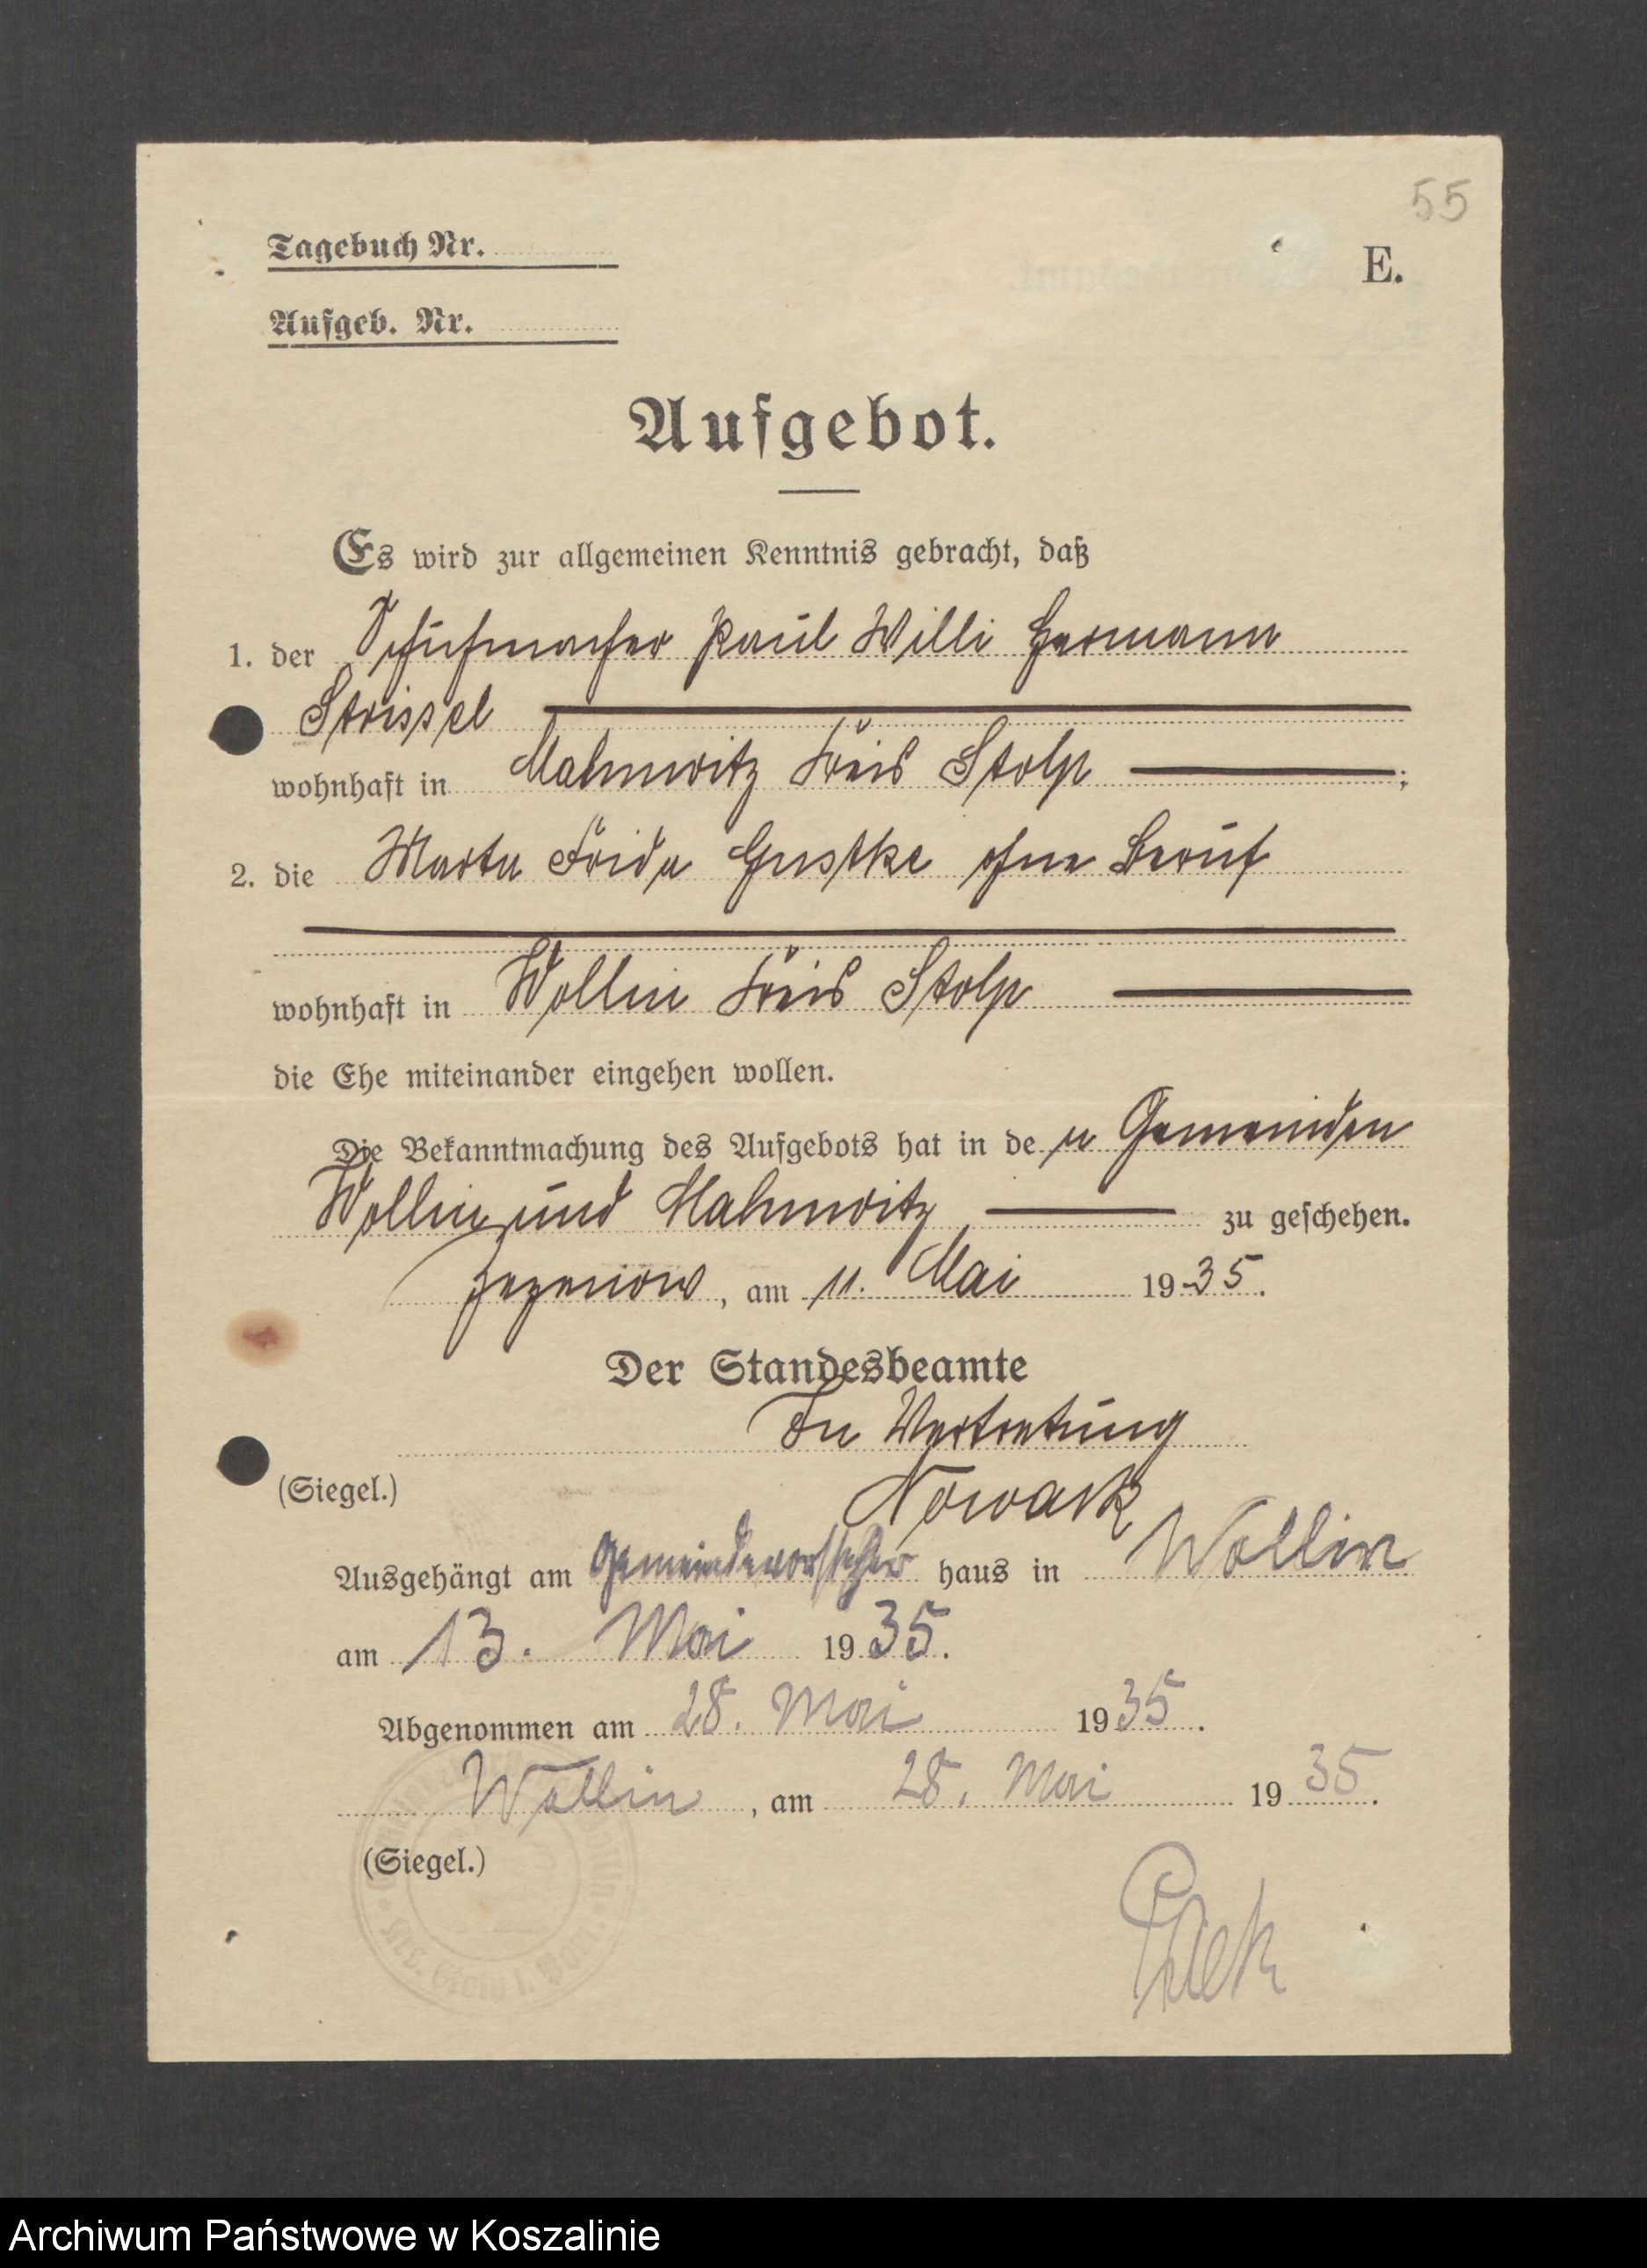 55
Tagebuch Nr.
E.
Aufgeb. Nr.
Aufgebot.
Es wird zur allgemeinen Kenntnis gebracht, daß
1. der Schuhmacher Paul Willi Hermann
Strissel
wohnhaft in Mahnwitz Kreis Stolp ;
2. die Marta Frida Gustke ohne Beruf
wohnhaft in Wollin Kreis Stolp
die Ehe miteinander eingehen wollen.
Die Bekanntmachung des Aufgebots hat in de n Gemeinden
Wollin und Mahnwitz zu geschehen.
Jezenow, am 11. Mai 1935.
Der Standesbeamte
In Vertretung
(Siegel.)
Nowack
Ausgehängt am Gemeindevorsteher haus in Wollin
am 13. Mai 1935.
Abgenommen am 28. Mai 1935.
Wollin, am 28. Mai 1935.
(Siegel.)
Archiwum Państwowe w Koszalinie